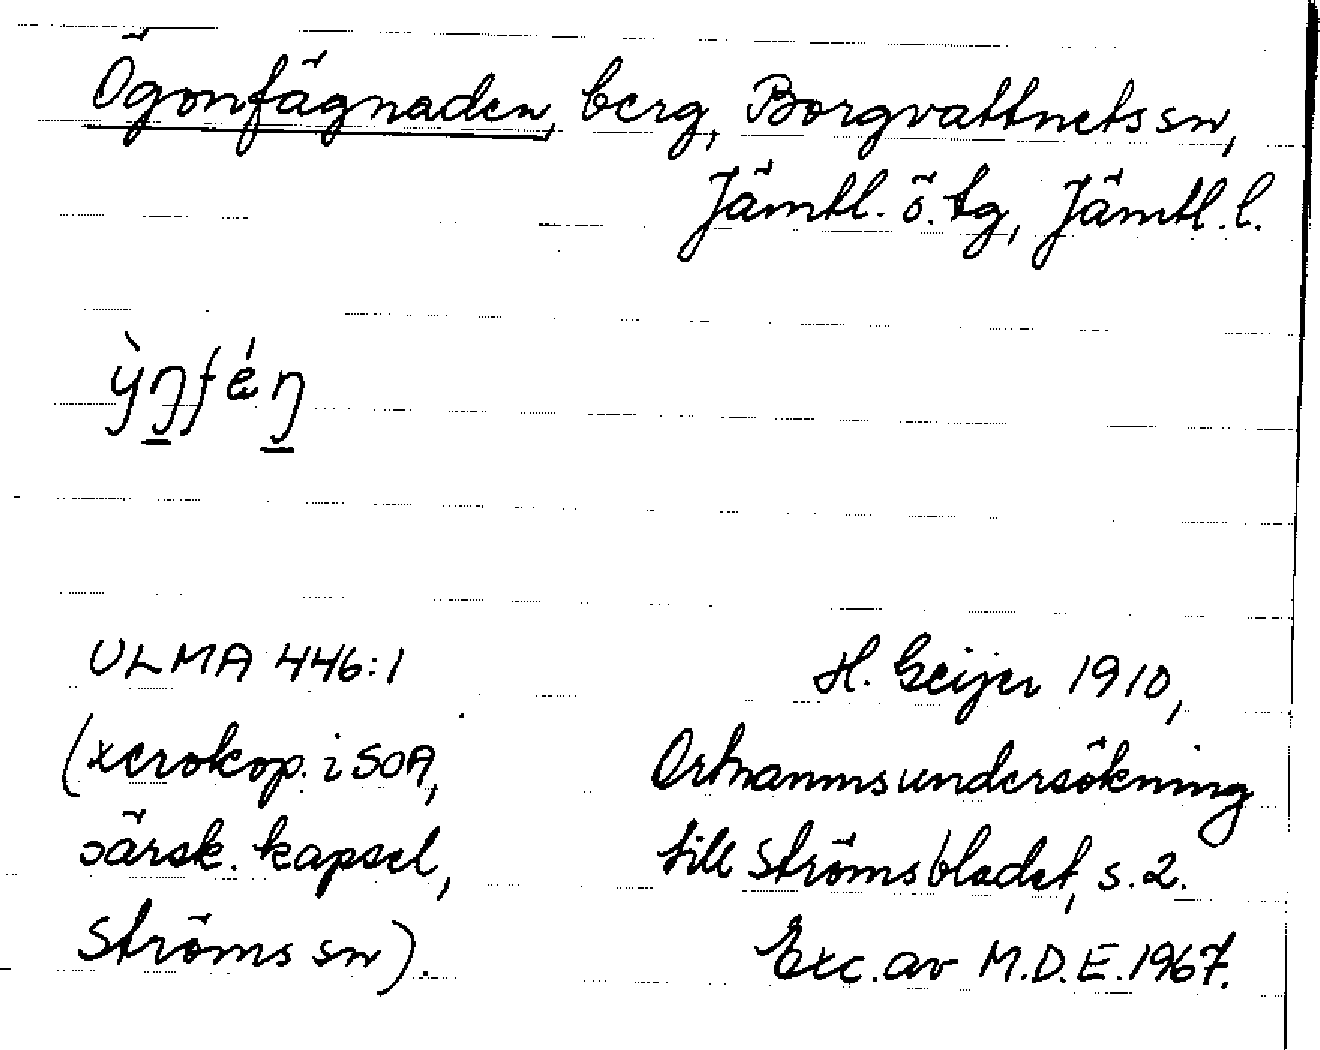 Ögonfägnaden, berg, Borgvattnets sn,
Jämtl. ö. tg, Jämtl. l.
ULMA 446:1
(xerokop. i SOA,
särsk. kapsel,
Ströms sn).
H. Geijer 1910,
Ortnamnsundersökning
till Strömsbladet, s. 2.
Exc. av M.D.E. 1967.